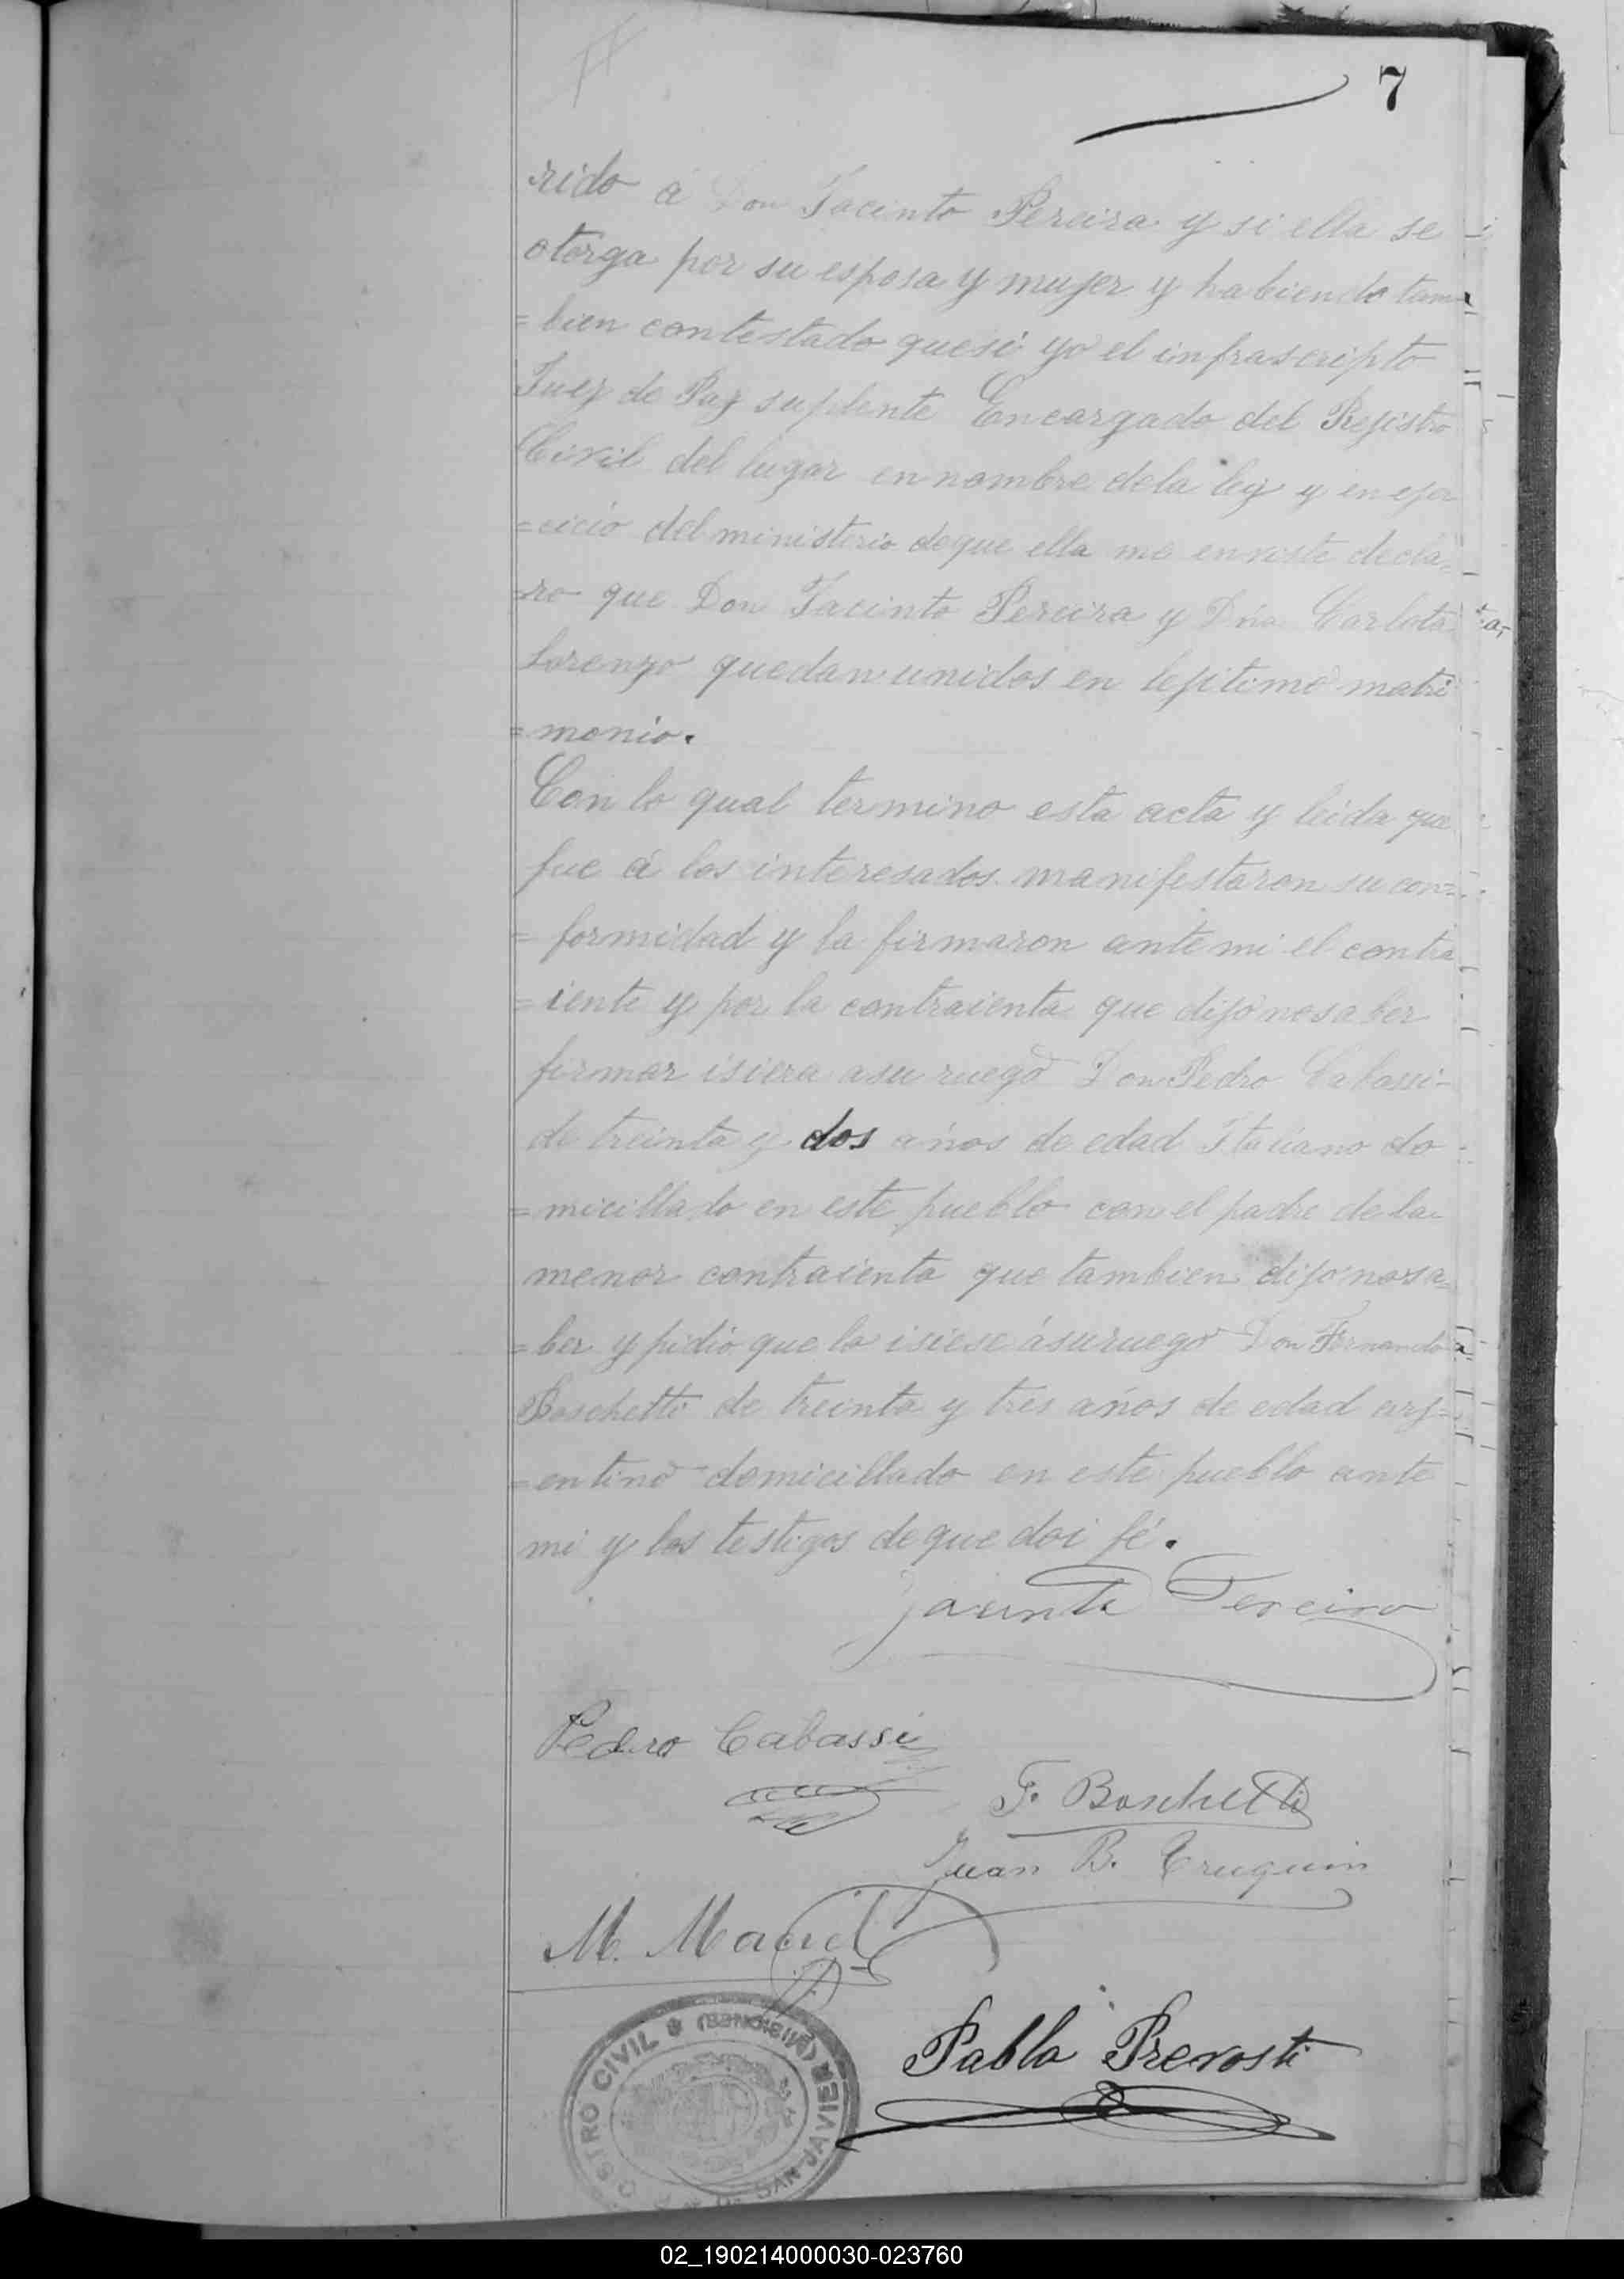 7
rido á Don Jacinto Pereira y si ella se
otorga por su esposa y mujer y habiendo tam
=bien contestado que si yo el infrascripto
Juez de Paz suplente Encargado del Rejistro
Civil del lugar en nombre de la ley y en ejer
=cicio del ministerio de que ella me enviste decla=
=ro que Don Jacinto Pereira y Dña Carlota
Lorenzo quedan unidos en lejitimo matri
=monio.
Con lo qual termino esta acta y leida que
fue á los interesados manifestaron su con=
=formidad y la firmaron ante mi el contra
=iente y por la contraienta que dijo no saber
firmar isiera a su ruego Don Pedro Cabassi
de treinta y dos años de edad Italiano do
=micillado en este pueblo con el padre de la
menor contraienta que tambien dijo no sa=
=ber y pidio que lo isiese á su ruego Don Fernando
Boschetti de treinta y tres años de edad arj=
=entino domicillado en este pueblo ante
mi y los testigos de que doi fé.
Jacinto Pereira
Pedro Cabassi
F. Boschetti
Juan B.
M.
Pablo Prevosti
STRO CIVIL (MISIONES) SAN JAVIER
02_190214000030-023760